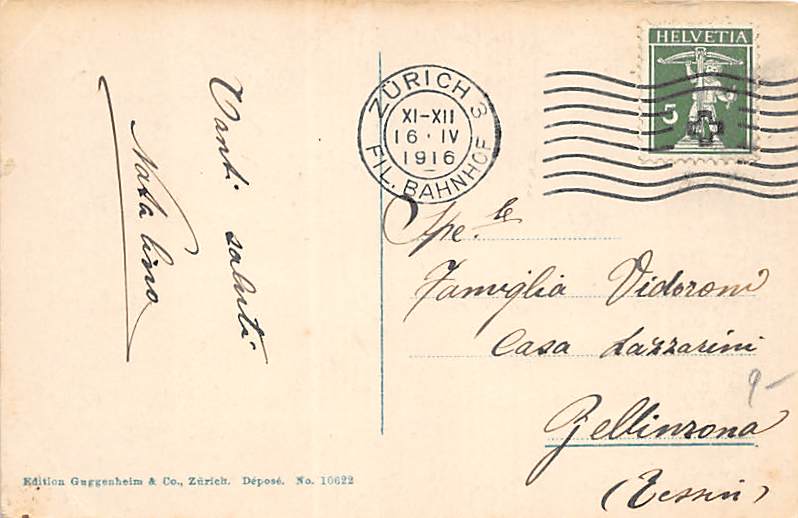 Tanti saluti
Natalino
ZÜRICH 3
XI-XII
16·IV
1916
FIL. BAHNHOF
HELVETIA
5
Spe.le
Famiglia Vidoroni
Casa Lazzarini
9-
Bellinzona
(Tessin)
Edition Guggenheim & Co., Zürich. Déposé. No. 10622